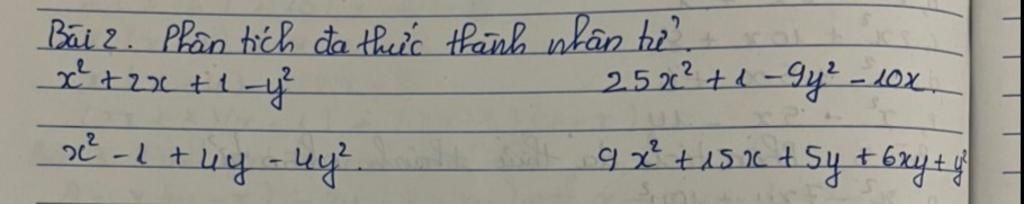 Bài 2. Phân tích đa thức thành nhân tử.
x² + 2x + 1 - y² 25x² + 1 - 9y² - 10x.
x² - 1 + 4y - 4y². 9x² + 15x + 5y + 6xy + y²